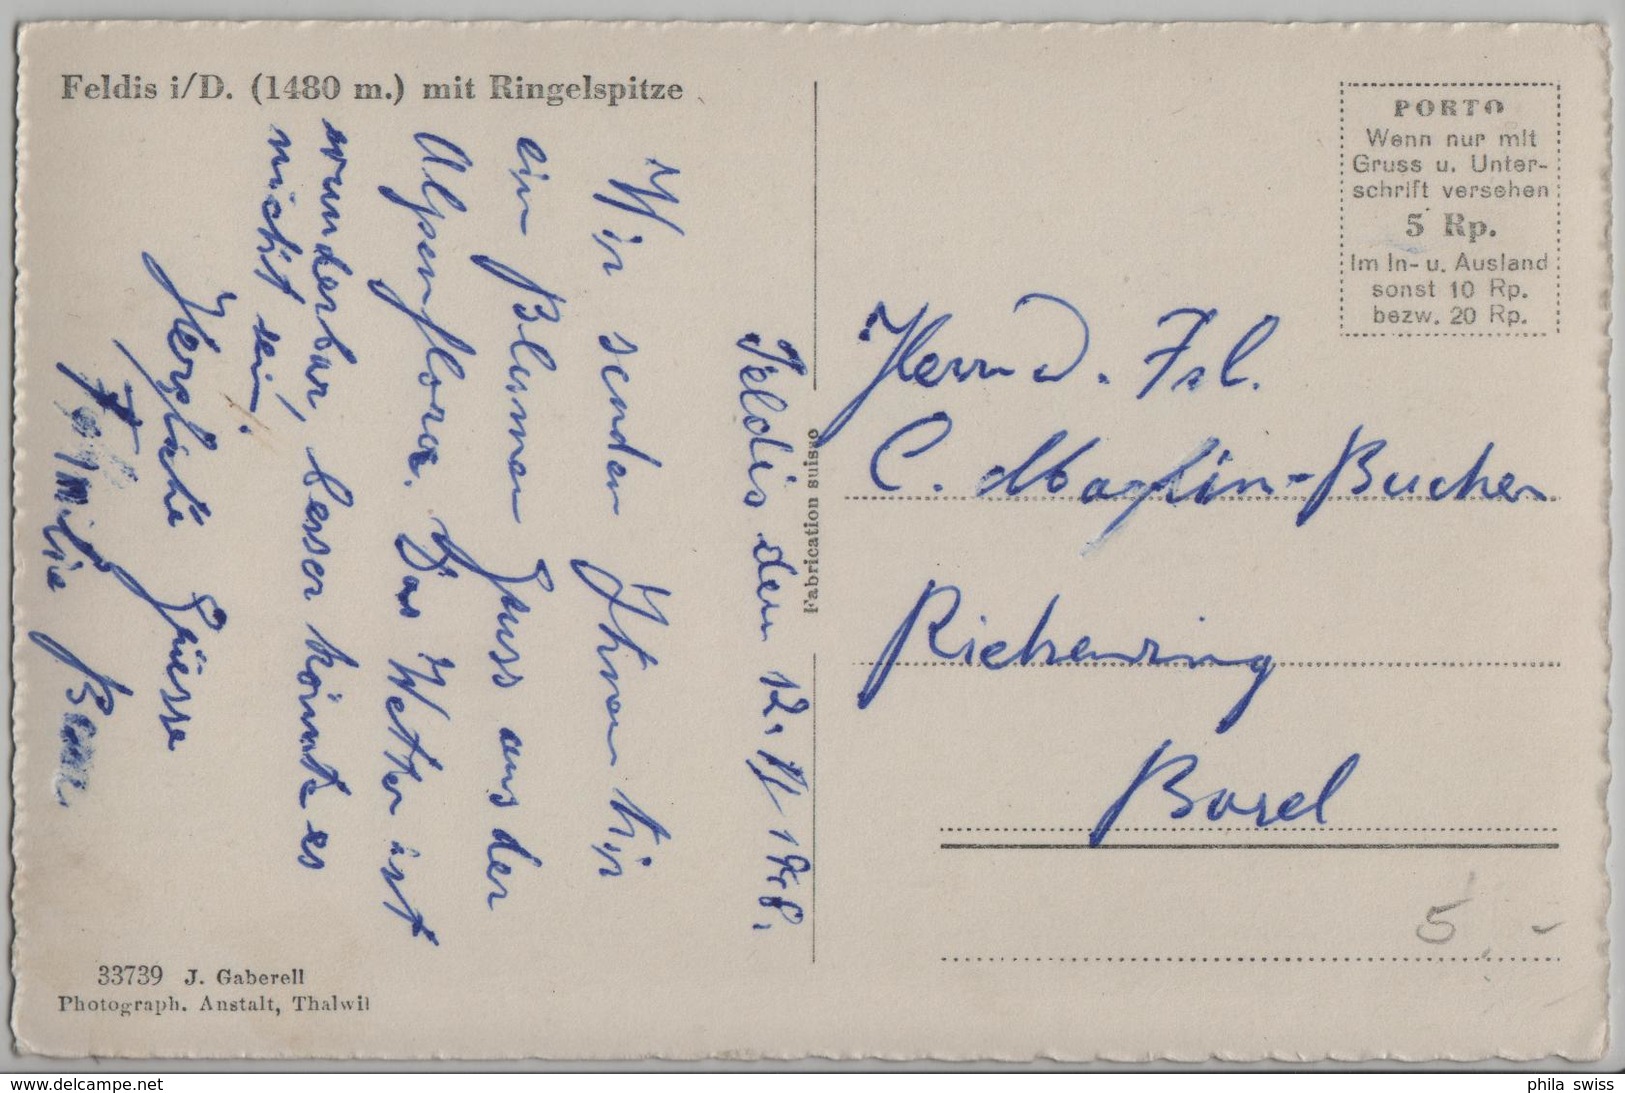 Feldis i/D. (1480 m.) mit Ringelspitze
Feldis den 12.
Wir senden Ihnen hir
ein Blumen Gruss aus der
Alpenflora. Das Wetter ist
wunderbar, besser könnte es
nicht sein.
Herzliche Grüsse
Familie
33739 J. Gaberell
Photograph. Anstalt, Thalwil
Fabrication suisse
PORTO
Wenn nur mit
Gruss u. Unter-
schrift versehen
5 Rp.
Im In- u. Ausland
sonst 10 Rp.
bezw. 20 Rp.
Herrn
C. -Bucher
Riehenring
Basel
5.-
www.delcampe.net
phila swiss